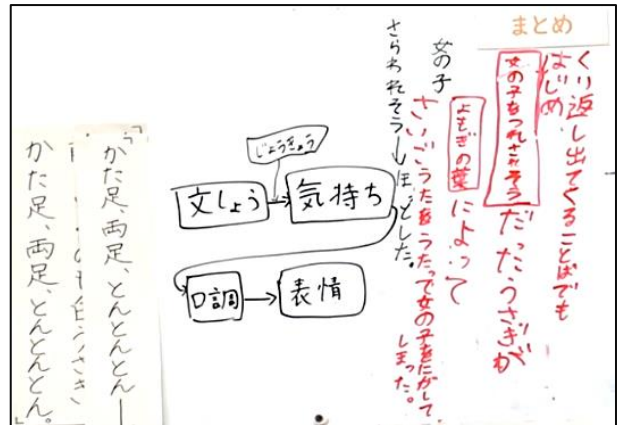 まとめ
くり返し出てくることばでも
はじめ
女の子をつれさりそう
だったうさぎが
よもぎの葉によって
さいごうたをうたって女の子をにがして
しまった。
女の子
さらわれそう→ほっとした。
じょうきょう
文しょう→気持ち
口調→表情
「かた足、両足、とんとんとん―
かた足、両足、とんとんとん。」